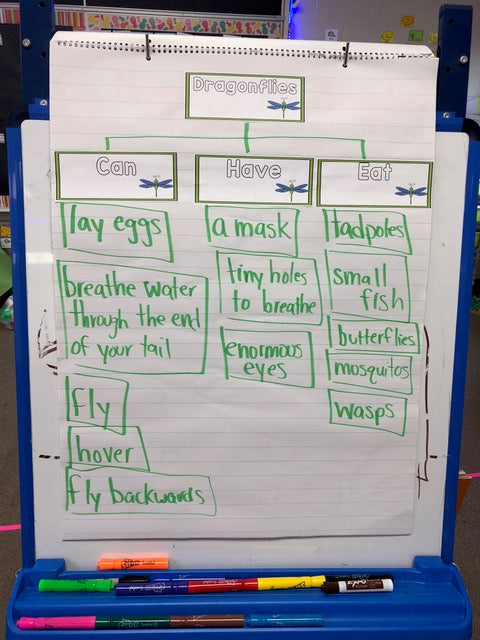 Dragonflies
Can
lay eggs
breathe water
through the end
of your tail
fly
hover
fly backwards
Have
a mask
tiny holes
to breathe
enormous
eyes
Eat
tadpoles
small
fish
butterflies
mosquitos
wasps